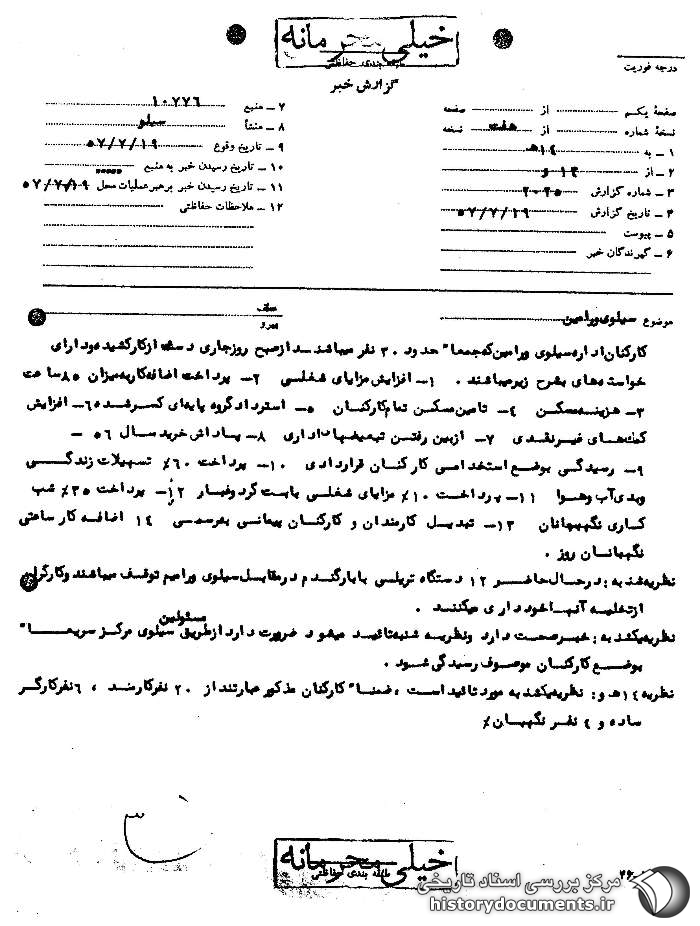 خیلی محرمانه
طبقه بندی حفاظتی
گزارش خبر
درجه فوریت
صفحهٔ یکم از صفحه
نسخهٔ شماره از هفت نسخه
۱ ـ به ۱۴هـ
۲ ـ از
۳ ـ شماره گزارش
۴ ـ تاریخ گزارش ۵۷/۷/۱۹
۵ ـ پیوست
۶ ـ گیرندگان خبر
۷ ـ منبع ۱۰۷۷۶
۸ ـ منشأ سیلو
۹ ـ تاریخ وقوع ۵۷/۷/۱۹
۱۰ ـ تاریخ رسیدن خبر به منبع
۱۱ ـ تاریخ رسیدن خبر برهبر عملیات محل ۵۷/۷/۱۹
۱۲ ـ ملاحظات حفاظتی
موضوع سیلوی ورامین
پیرو
کارکنان اداره سیلوی ورامین که جمعا" حدود ۳۰ نفر میباشند ـ از صبح روز جاری دست از کار کشیده و دارای
خواسته های بشرح زیر میباشند . ۱ـ افزایش مزایای شغلی ۲ـ پرداخت اضافه کار به میزان ۸۵ ساعت
۳ـ هزینه مسکن ۴ـ تامین مسکن تمام کارکنان ۵ـ استرداد گروه پایه ای کسر شده ۶ـ افزایش
کمک های غیر نقدی ۷ـ از بین رفتن تبعیضهای اداری ۸ـ پاداش خرید سال ۵۶ ـ
۹ـ رسیدگی بوضع استخدامی کارکنان قراردادی ۱۰ـ پرداخت ۶۰٪ تسهیلات زندگی
وبدی آب و هوا ۱۱ـ پرداخت ۱۰٪ مزایای شغلی بابت گرد و غبار ۱۲ـ پرداخت ۳۵٪ شب
کاری نگهبانان ۱۳ـ تبدیل کارمندان و کارکنان پیمانی به رسمی ۱۴ اضافه کار ساعتی
نگهبانان روز .
نظریه شنبه : در حال حاضر ۱۲ دستگاه تریلی با بار گندم در مقابل سیلوی ورامین توقف میباشند و کارگران
از تخلیه آنها خودداری میکنند .
نظریه یکشنبه : خبر صحت دارد و نظریه شنبه تائید میشود ضرورت دارد از طریق مسئولین سیلوی مرکز سریعا"
بوضع کارکنان موصوف رسیدگی شود .
نظریه ۱۴ هـ و : نظریه یکشنبه مورد تائید است ، ضمنا" کارکنان مذکور عبارتند از ۲۰ نفر کارمند ، ۶ نفر کارگر
ساده و ۴ نفر نگهبان٪
خیلی محرمانه
طبقه بندی حفاظتی
مرکز بررسی اسناد تاریخی
historydocuments.ir